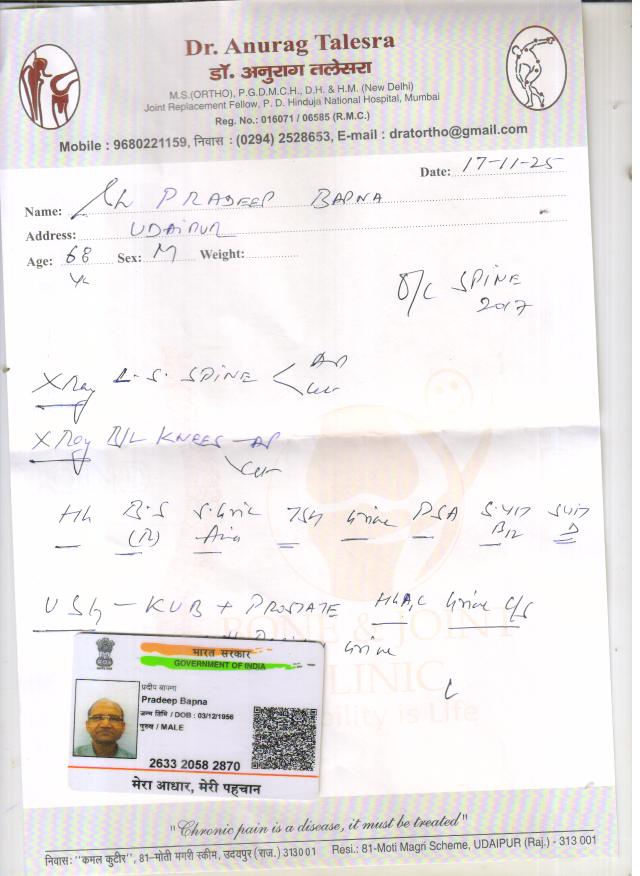 Dr. Anurag Talesra
डॉ. अनुराग तलेसरा
M.S.(ORTHO), P.G.D.M.C.H., D.H. & H.M. (New Delhi)
Joint Replacement Fellow, P. D. Hinduja National Hospital, Mumbai
Reg. No.: 016071 / 06585 (R.M.C.)
Mobile : 9680221159, निवास : (0294) 2528653, E-mail : dratortho@gmail.com
Date: 17-11-25
Name: PRADEEP BAPNA
Address: UDAIPUR
Age: 68 Sex: M Weight:
O/C SPINE
2017
X Ray L.S. SPINE AP
X Ray B/L KNEES AP
B.S TSH Urine PSA S.VIT
(R) B12 D
USG - KUB + PROSTATE HbA1C Urine C/S
Urine
BONE & JOINT
CLINIC
is Life
भारत सरकार
GOVERNMENT OF INDIA
प्रदीप बापना
Pradeep Bapna
जन्म तिथि / DOB : 03/12/1956
पुरुष / MALE
2633 2058 2870
मेरा आधार, मेरी पहचान
"Chronic pain is a disease, it must be treated"
निवास: "कमल कुटीर", 81-मोती मगरी स्कीम, उदयपुर (राज.) 313001 Resi.: 81-Moti Magri Scheme, UDAIPUR (Raj.) - 313 001